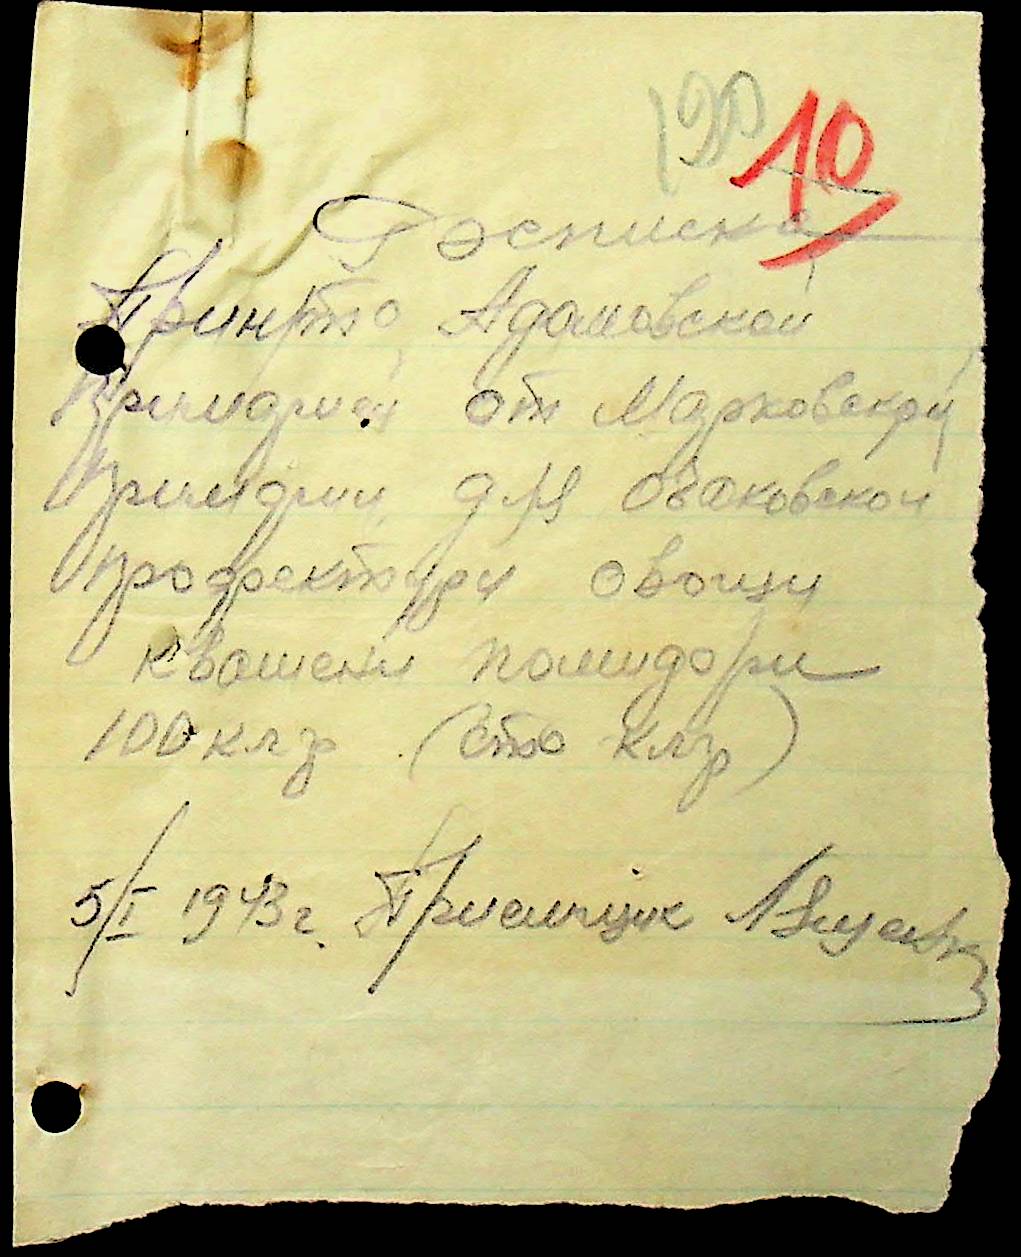 190 10
Росписка
Принято Адамовской
Примарии от Марковской
Примарии для Очаковской
профектури овощи
квашени помидори
100 клгр (сто клгр)
5/I 1943 г. Приемщик